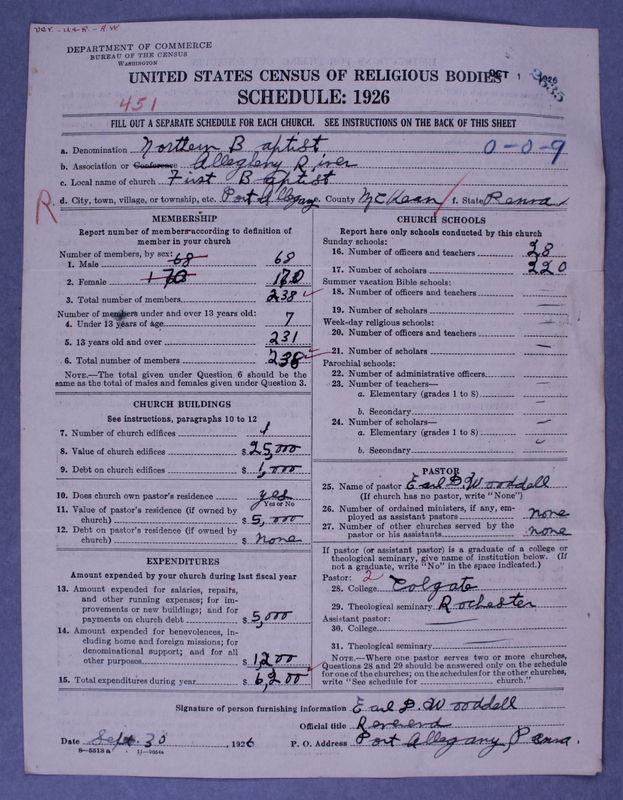 Ver. - U.S.R. - A.W.
DEPARTMENT OF COMMERCE
BUREAU OF THE CENSUS
WASHINGTON
OCT 1 1926
2635
UNITED STATES CENSUS OF RELIGIOUS BODIES
451
SCHEDULE: 1926
FILL OUT A SEPARATE SCHEDULE FOR EACH CHURCH. SEE INSTRUCTIONS ON THE BACK OF THIS SHEET
a. Denomination Northern Baptist 0-0-9
b. Association or Conference Allegheny River
c. Local name of church First Baptist
R. d. City, town, village, or township, etc. Port Allegany e. County McKean f. State Penna
MEMBERSHIP
Report number of members according to definition of member in your church
Number of members, by sex:
1. Male 68 68
2. Female 170 170
3. Total number of members 238
Number of members under and over 13 years old:
4. Under 13 years of age 7
5. 13 years old and over 231
6. Total number of members 238
NOTE.—The total given under Question 6 should be the same as the total of males and females given under Question 3.
CHURCH BUILDINGS
See instructions, paragraphs 10 to 12
7. Number of church edifices 1
8. Value of church edifices $ 25,000
9. Debt on church edifices $ 1,000
10. Does church own pastor's residence yes
Yes or No
11. Value of pastor's residence (if owned by church) $ 5,000
12. Debt on pastor's residence (if owned by church) $ None
EXPENDITURES
Amount expended by your church during last fiscal year
13. Amount expended for salaries, repairs, and other running expenses; for improvements or new buildings; and for payments on church debt $ 5,000
14. Amount expended for benevolences, including home and foreign missions; for denominational support; and for all other purposes $ 1200
15. Total expenditures during year $ 6,200
CHURCH SCHOOLS
Report here only schools conducted by this church
Sunday schools:
16. Number of officers and teachers 28
17. Number of scholars 220
Summer vacation Bible schools:
18. Number of officers and teachers —
19. Number of scholars —
Week-day religious schools:
20. Number of officers and teachers —
21. Number of scholars —
Parochial schools:
22. Number of administrative officers —
23. Number of teachers—
a. Elementary (grades 1 to 8) —
b. Secondary —
24. Number of scholars—
a. Elementary (grades 1 to 8) —
b. Secondary
PASTOR
25. Name of pastor Earl D. Wooddell
(If church has no pastor, write "None")
26. Number of ordained ministers, if any, employed as assistant pastors none
27. Number of other churches served by the pastor or his assistants none
If pastor (or assistant pastor) is a graduate of a college or theological seminary, give name of institution below. (If not a graduate, write "No" in the space indicated.)
Pastor: 2
28. College Colgate
29. Theological seminary Rochester
Assistant pastor:
30. College
31. Theological seminary
NOTE.—Where one pastor serves two or more churches, Questions 28 and 29 should be answered only on the schedule for one of the churches; on the schedules for the other churches, write "See schedule for church."
Signature of person furnishing information Earl D. Wooddell
Official title Reverend
Date Sept. 30, 1926 P. O. Address Port Allegany, Penna.
8—5518 a 11—9554a